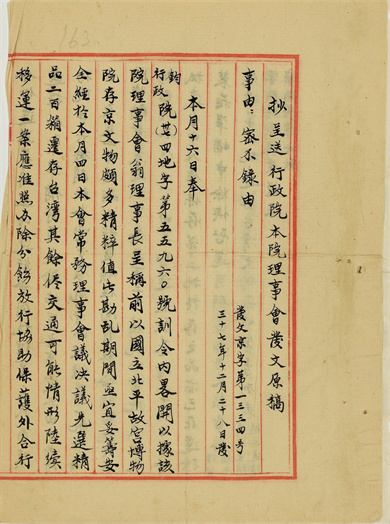 163
抄呈送行政院本院理事會發文原稿
事由：密不錄由
發文京字第一三三四号
三十七年十二月二十八日發
本月十六日奉
鈞
行政院(卅)四地字第五五九六〇號訓令內畧開以據該
院理事會翁理事長呈稱前以國立北平故宮博物
院存京文物頗多精粹值此勘乱期間亟宜妥善安
全經於本月四日本會常務理事會議決議先選精
品二百箱運存台湾其餘俟交通可能情形陸續
移運一案應准照办除分飭放行協助保護外合行